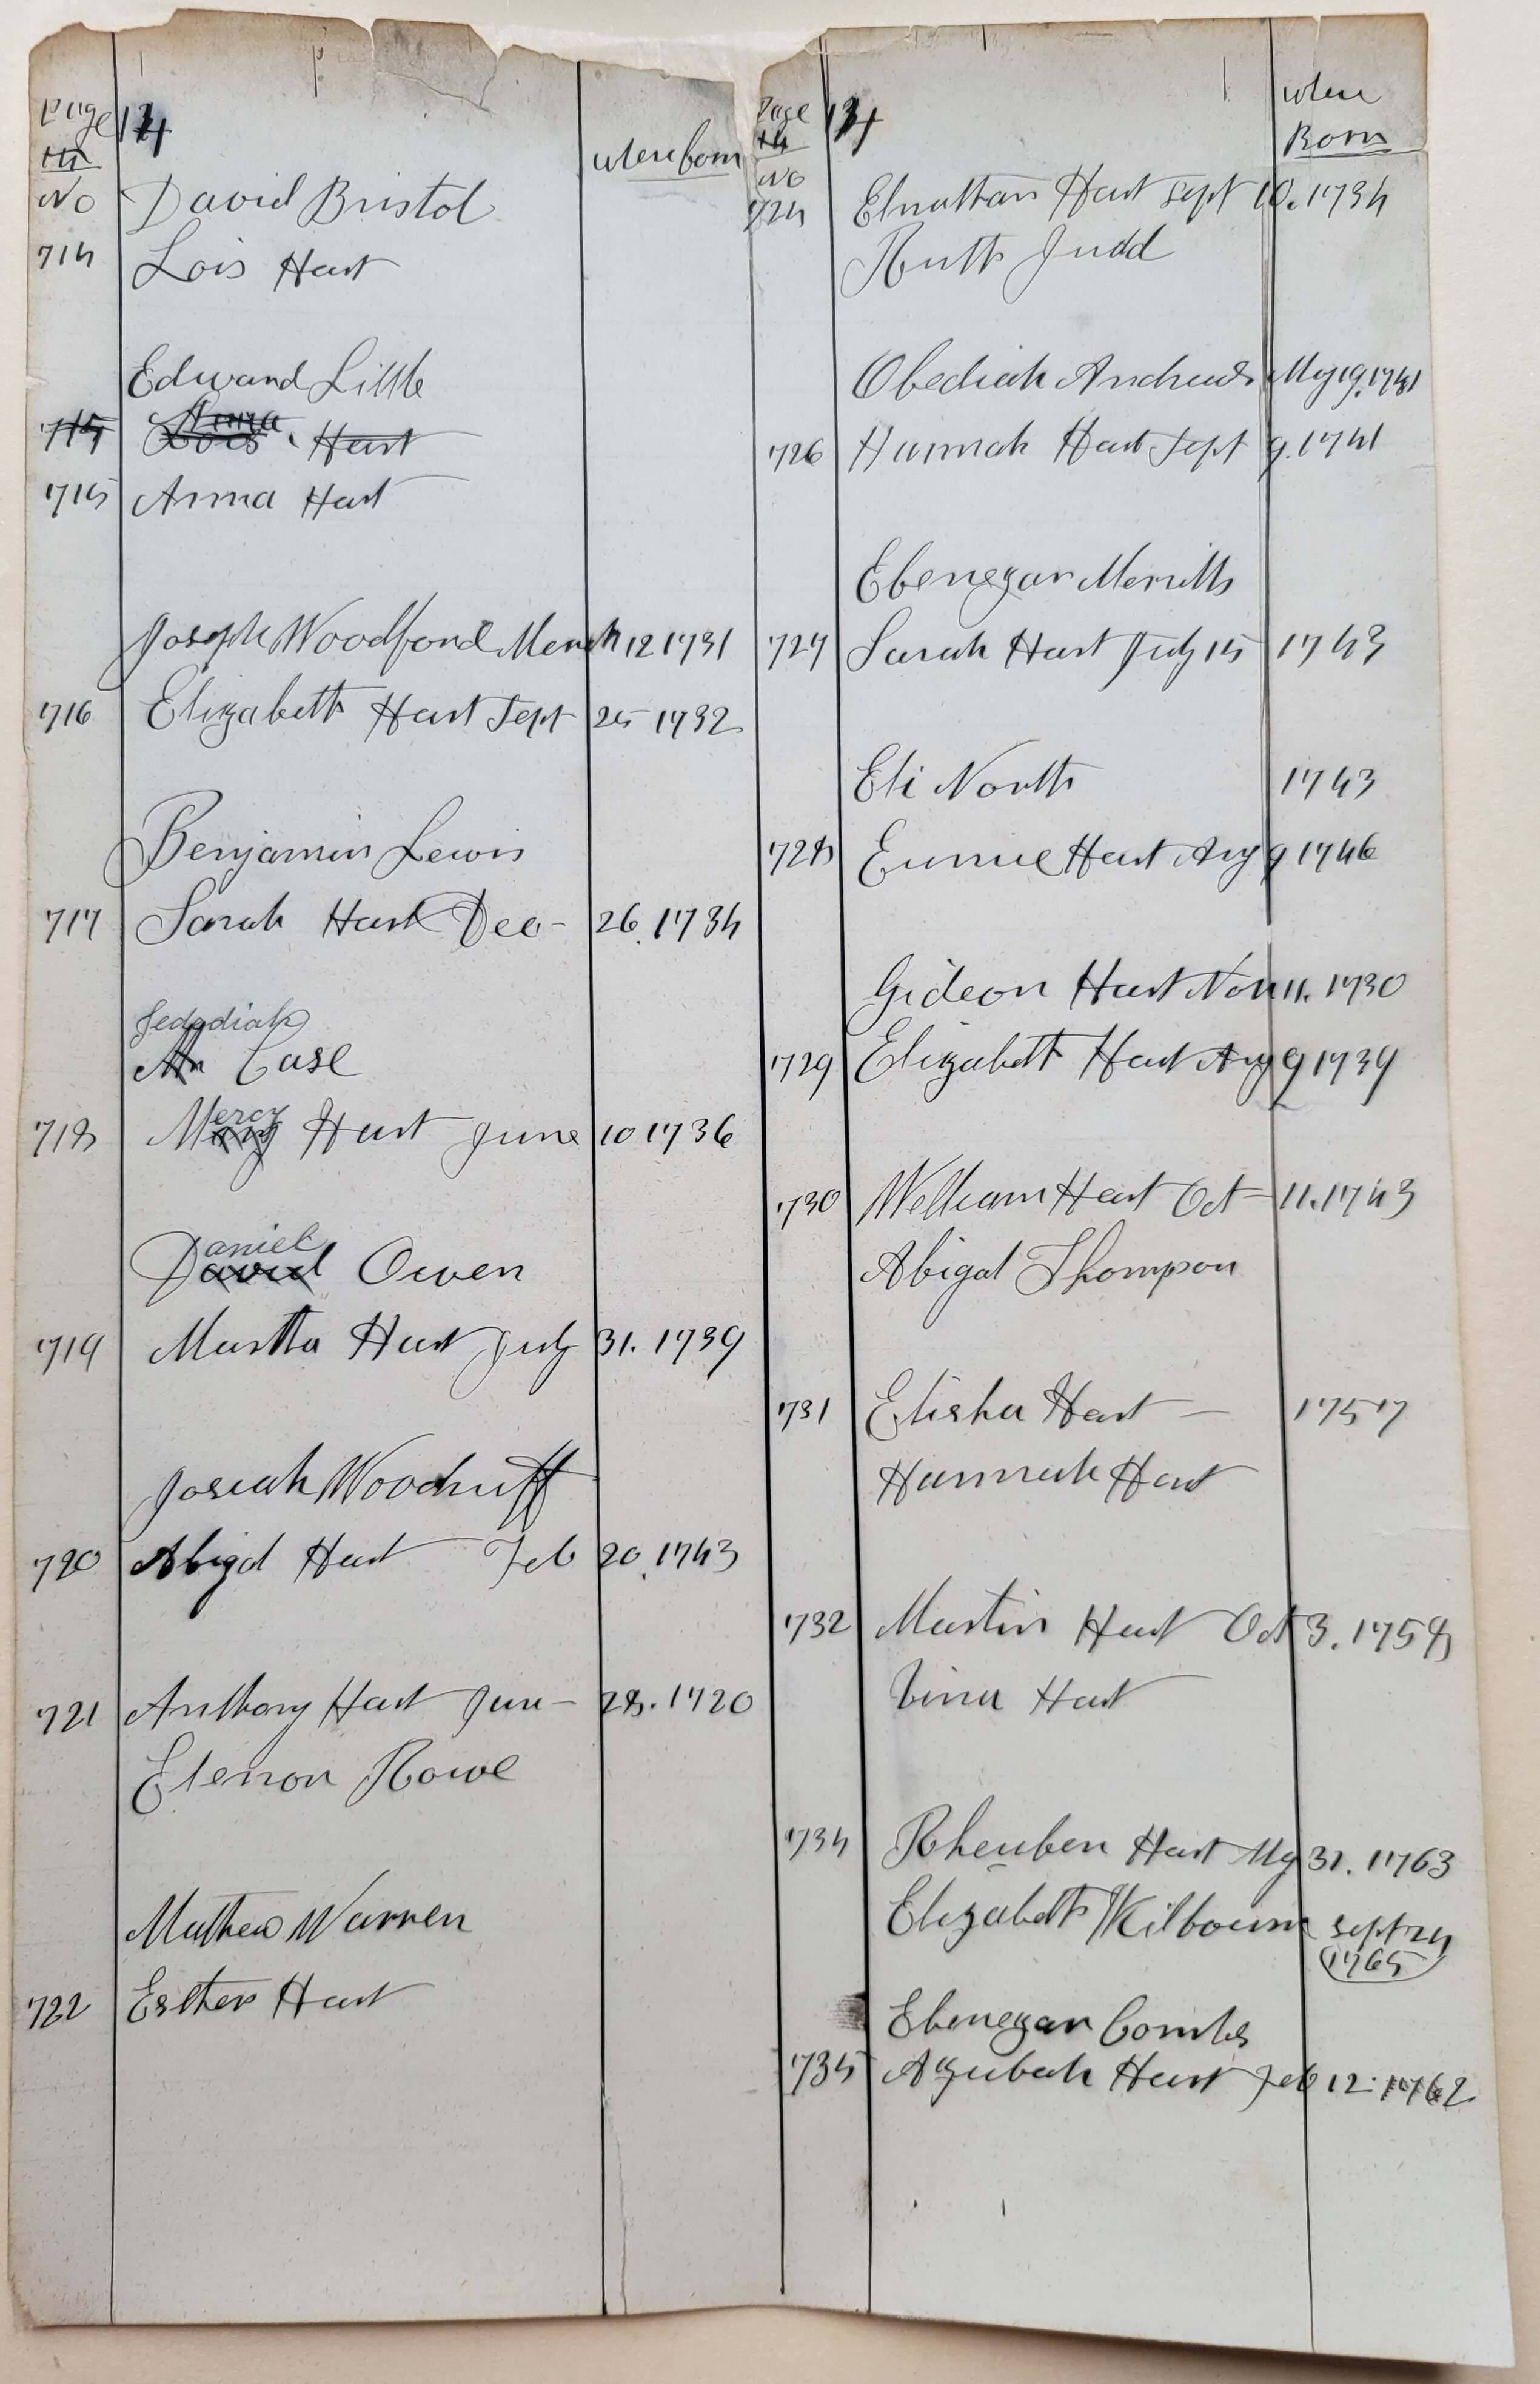 Page 14
No
David Bristol
when born
714 Lois Hart
Edward Little
715 Lois Anna Hart
715 Anna Hart
Joseph Woodford March 12 1731
716 Elizabeth Hart Sept 25 1732
Benjamin Lewis
717 Sarah Hart Dec - 26. 1734
Jedediah
Mr Case
718 Mercy Hart June 10 1736
Daniel
David Owen
719 Martha Hart July 31. 1739
Josiah Woodruff
720 Abigal Hart Feb 20. 1743
721 Anthony Hart Jun - 28. 1720
Elenor Rowe
Mathew Warren
722 Esther Hart
Page 14
when Born
No
724 Elnathan Hart Sept 10. 1734
Ruth Judd
Obediah Andrews My 19. 1741
726 Hannah Hart Sept 9. 1741
Ebenezar Merrills
727 Sarah Hart July 15 1743
Eli North 1743
728 Eunice Hart Aug 9 1746
Gideon Hart Nov 11. 1730
729 Elizabeth Hart Aug 9 1739
730 William Hart Oct - 11. 1743
Abigal Thompson
731 Elisha Hart - 1757
Hannah Hart
732 Martin Hart Oct 3. 1758
Vina Hart
734 Rheuben Hart My 31. 1763
Elizabeth Kilbourn Sept 24
1765
Ebenezar Combs
735 Azubah Hart Feb 12. 1762